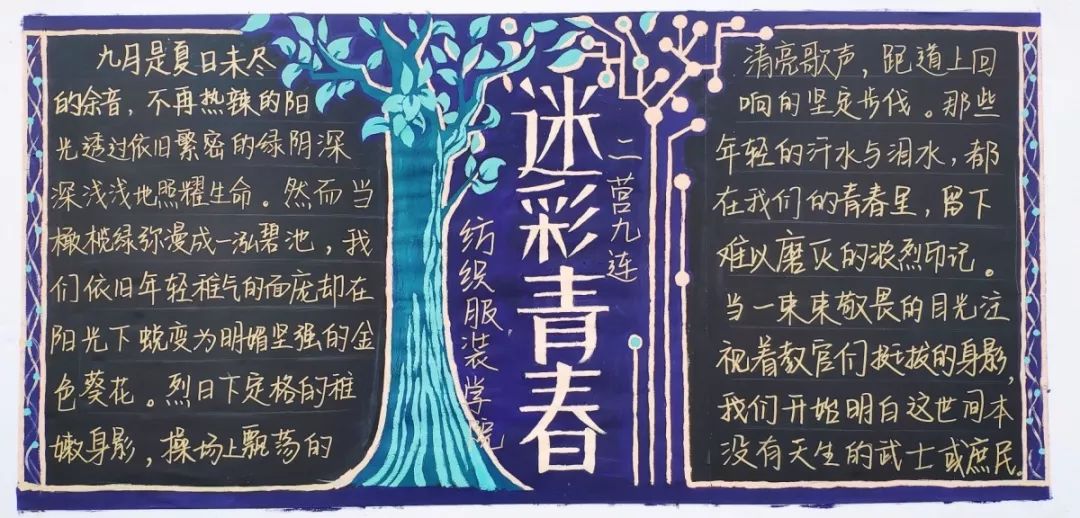 九月是夏日未尽
的余音，不再热辣的阳
光透过依旧繁密的绿阴深
深浅浅地照耀生命。然而当
橄榄绿弥漫成一泓碧池，我
们依旧年轻稚气的面庞却在
阳光下蜕变为明媚坚强的金
色葵花。烈日下定格的稚
嫩身影，操场上飘荡的
迷彩青春
二营九连
纺织服装学院
清亮歌声，跑道上回
响的坚定步伐。那些
年轻的汗水与泪水，都
在我们的青春里，留下
难以磨灭的浓烈印记。
当一束束敬畏的目光注
视着教官们挺拔的身影，
我们开始明白这世间本
没有天生的武士或庶民。